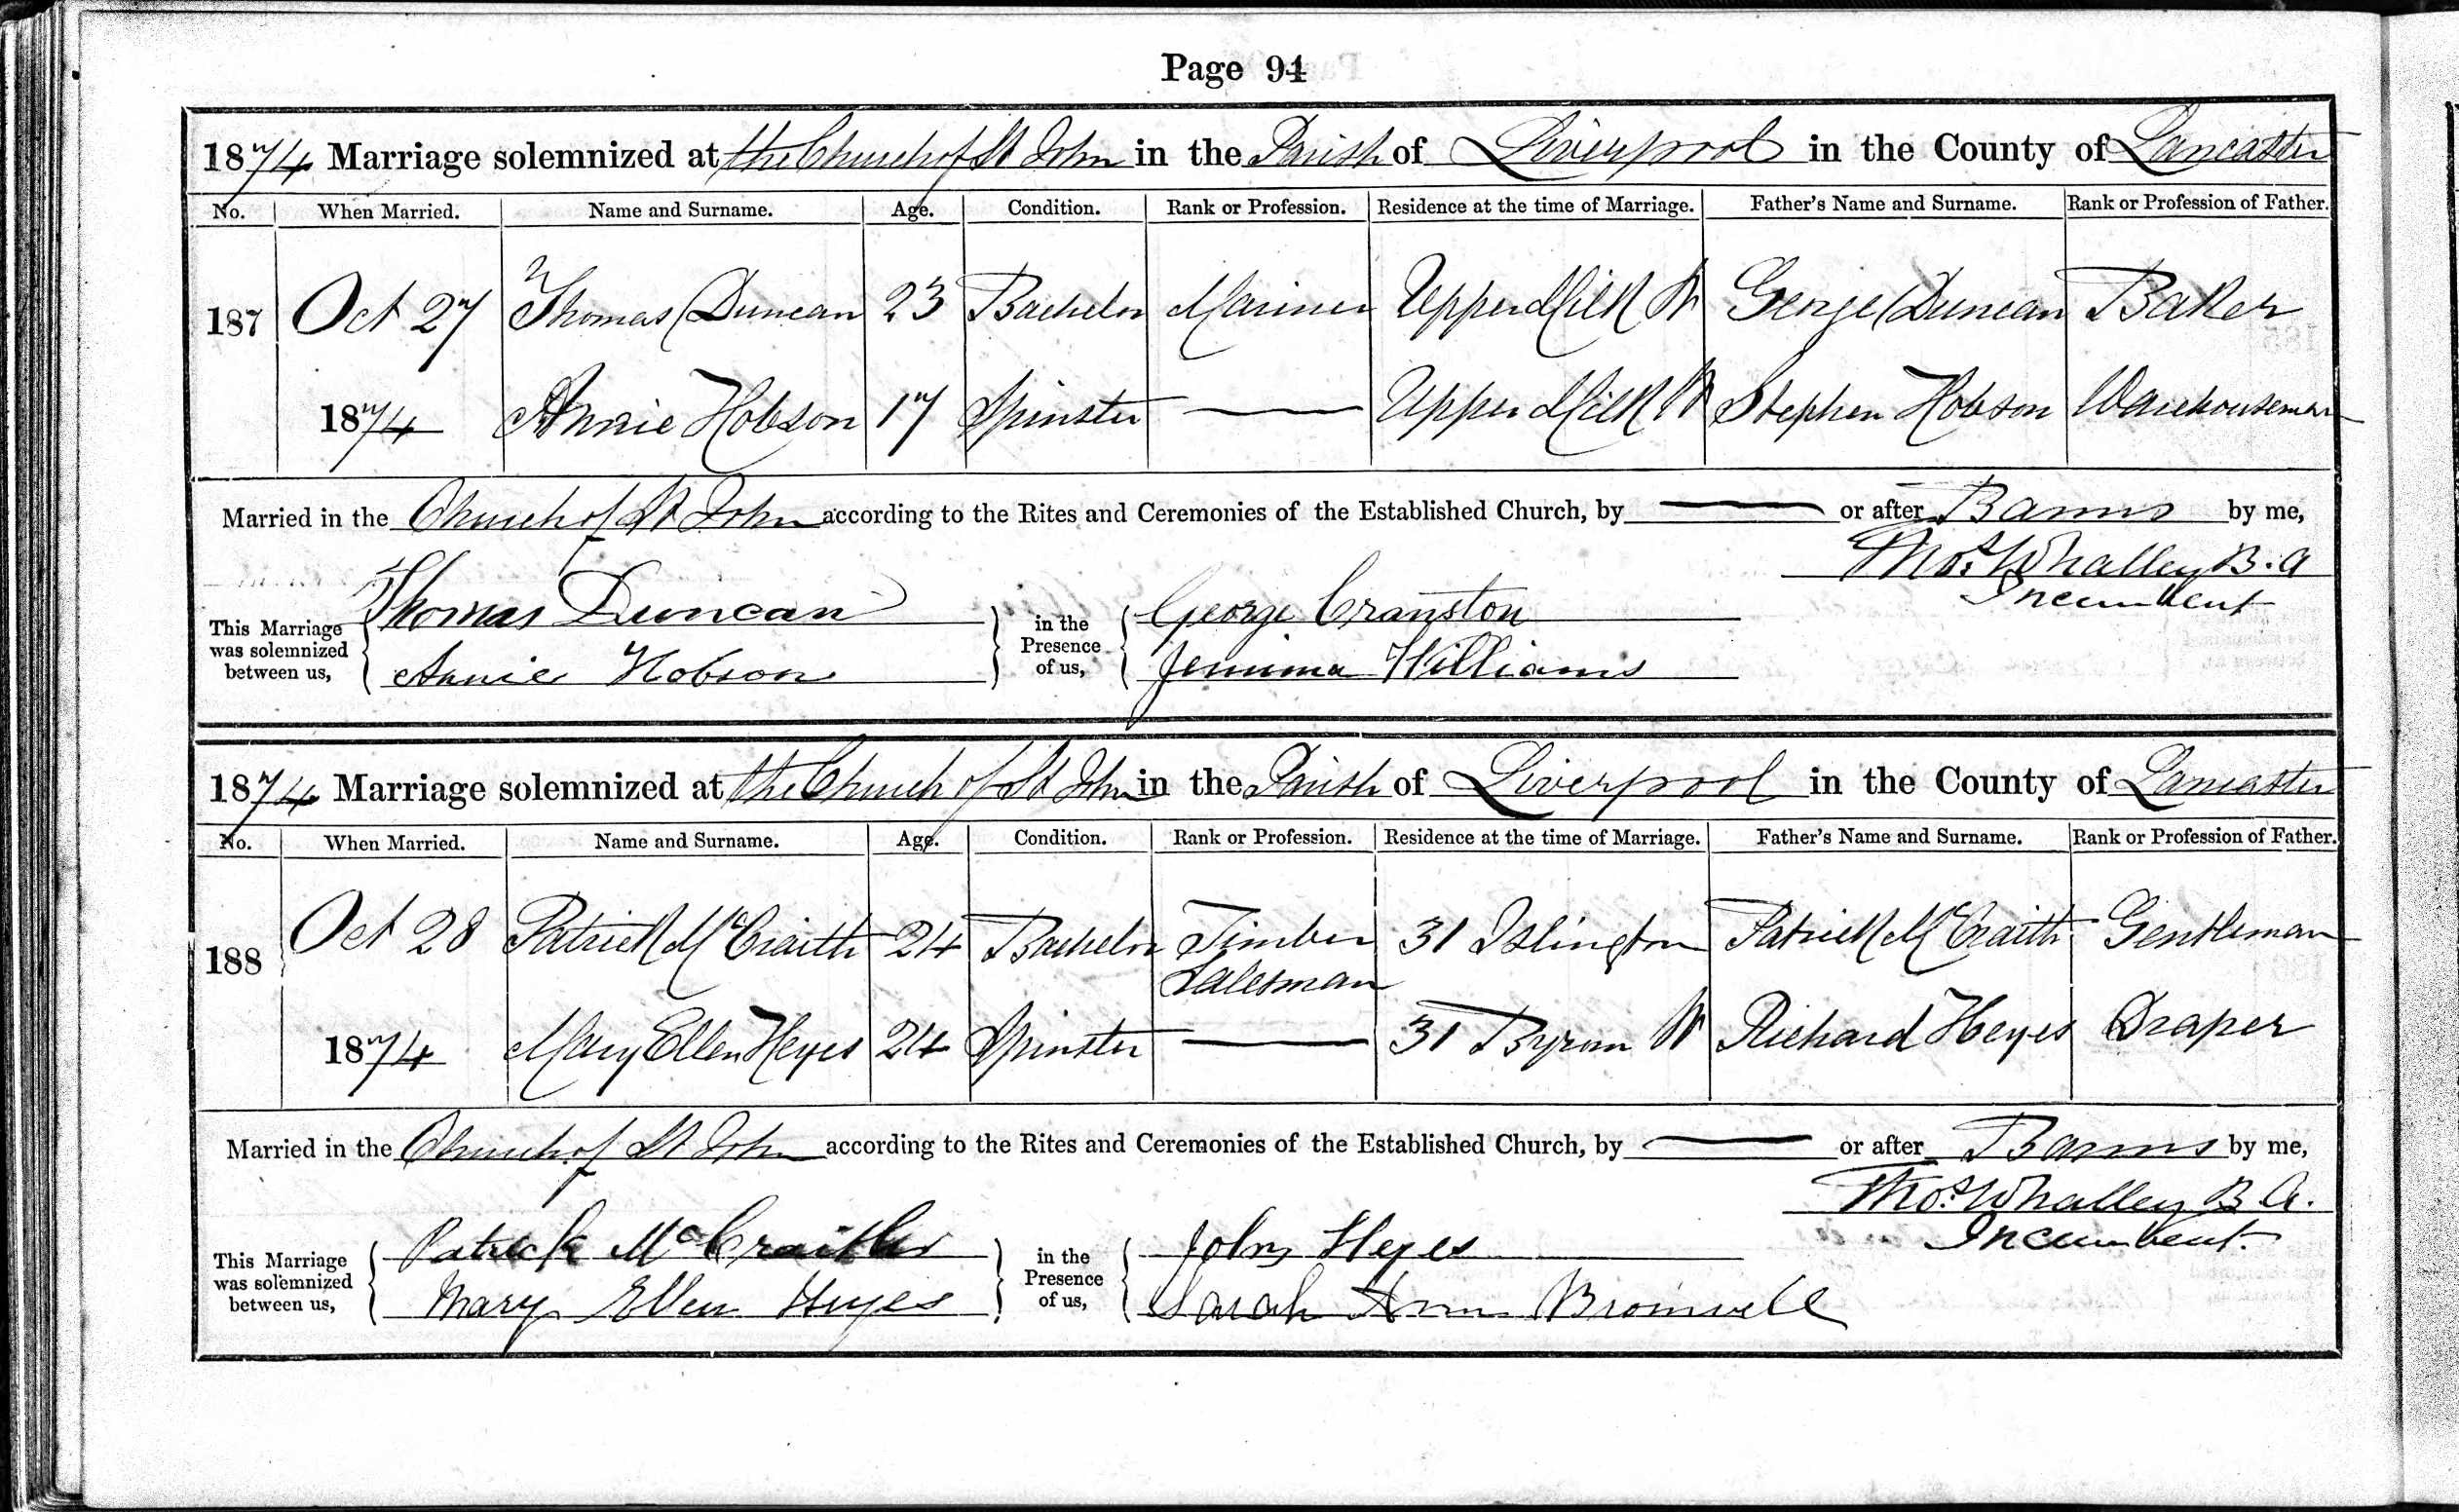 Page 94
1874 Marriage solemnized at the Church of St John in the Parish of Liverpool in the County of Lancaster
No. When Married. Name and Surname. Age. Condition. Rank or Profession. Residence at the time of Marriage. Father's Name and Surname. Rank or Profession of Father.
187 Oct 27 Thomas Duncan 23 Bachelor Mariner Upper Milk St George Duncan Baker
1874 Annie Hobson 17 Spinster Upper Milk St Stephen Hobson Warehouseman
Married in the Church of St John according to the Rites and Ceremonies of the Established Church, by or after Banns by me,
Thos. Whalley B.A
Incumbent
This Marriage was solemnized between us, Thomas Duncan in the Presence of us, George Cranston
Annie Hobson Jemima Williams
1874 Marriage solemnized at the Church of St John in the Parish of Liverpool in the County of Lancaster
No. When Married. Name and Surname. Age. Condition. Rank or Profession. Residence at the time of Marriage. Father's Name and Surname. Rank or Profession of Father.
188 Oct 28 Patrick McCraith 24 Bachelor Timber 31 Islington Patrick McCraith Gentleman
Salesman
1874 Mary Ellen Heyes 24 Spinster 31 Byrom St Richard Heyes Draper
Married in the Church of St John according to the Rites and Ceremonies of the Established Church, by or after Banns by me,
Thos. Whalley B.A.
Incumbent.
This Marriage was solemnized between us, Patrick McCraith in the Presence of us, John Heyes
Mary Ellen Heyes Sarah Ann Bromwell